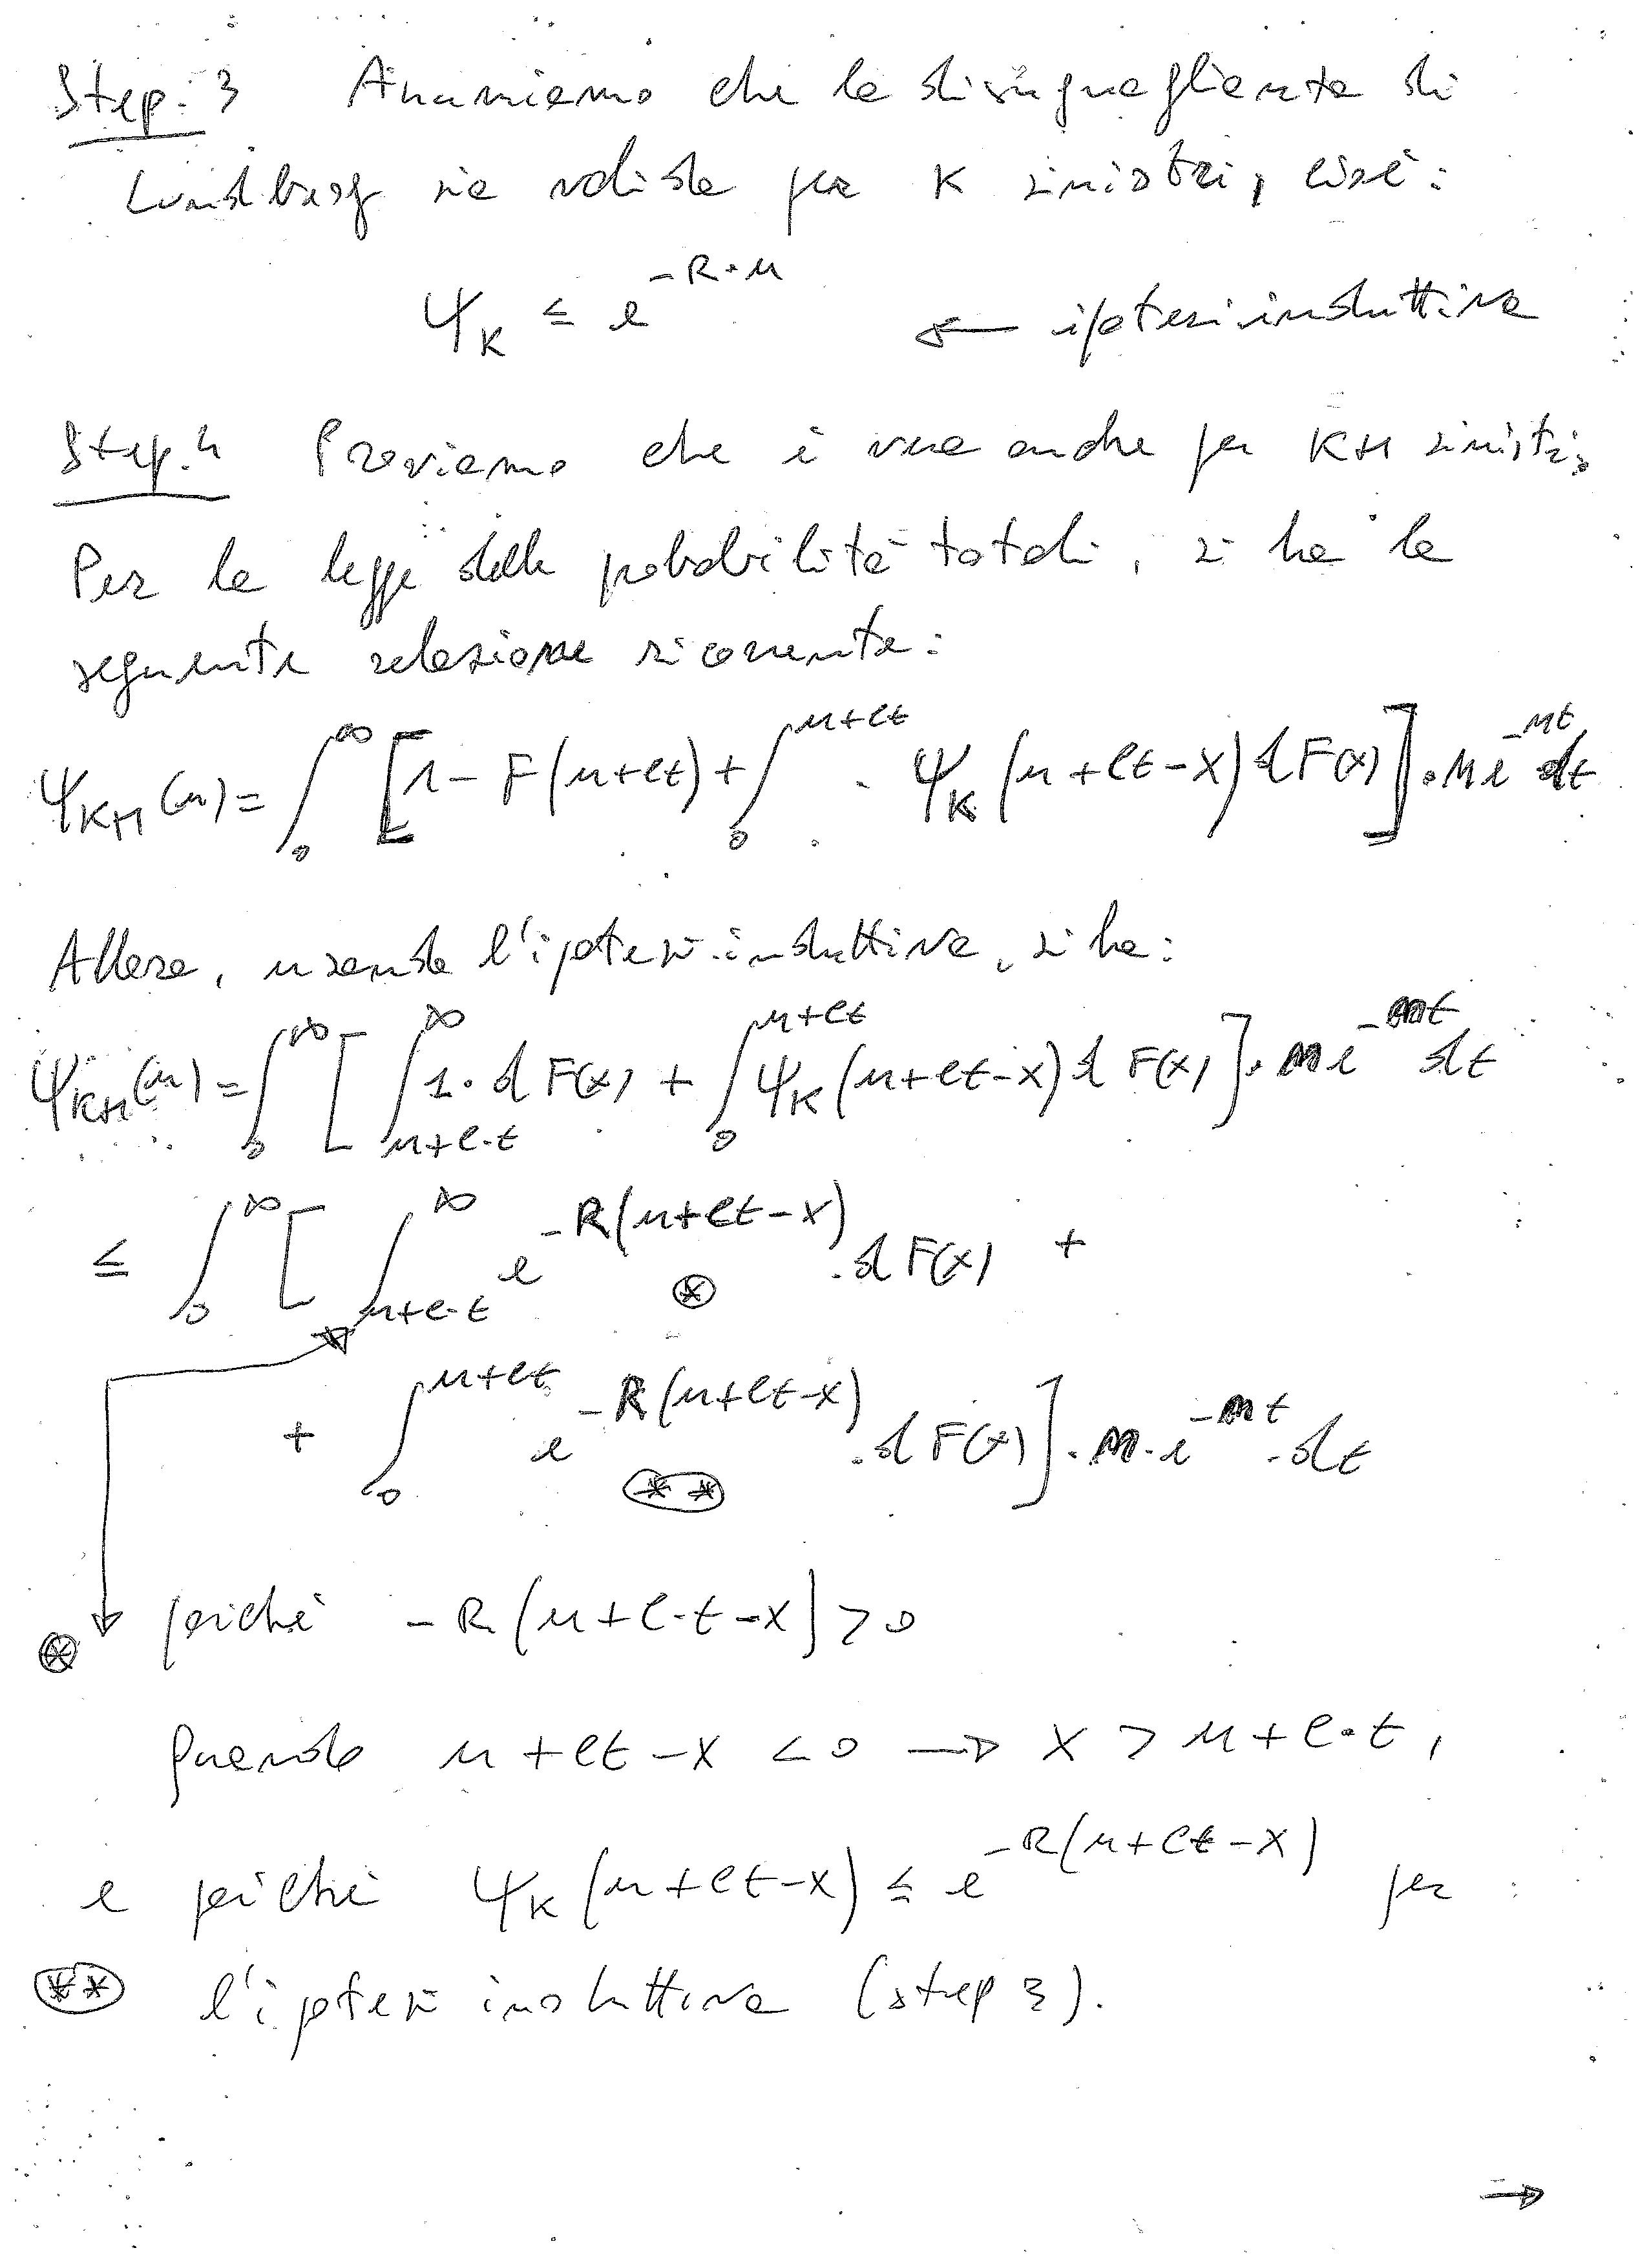 Step. 3 Assumiamo che la disuguaglianza di
Lundberg sia valida per K sinistri, cioè:
ψ_K ≤ e^{-R·u} ← ipotesi induttiva
Step. 4 Proviamo che è vera anche per K+1 sinistri.
Per la legge delle probabilità totali, si ha la
seguente relazione ricorrente:
ψ_{K+1}(u) = ∫_0^∞ [1 - F(u+ct) + ∫_0^{u+ct} · ψ_K(u+ct-x) dF(x)] · M e^{-Mt} dt
Allora, usando l'ipotesi induttiva, si ha:
ψ_{K+1}(u) = ∫_0^∞ [∫_{u+c·t}^∞ 1·dF(x) + ∫_0^{u+ct} ψ_K(u+ct-x) dF(x)] · M e^{-Mt} dt
≤ ∫_0^∞ [∫_{u+c·t}^∞ e^{-R(u+ct-x)} · dF(x) +
⊛
+ ∫_0^{u+ct} e^{-R(u+ct-x)} · dF(x)] · M · e^{-Mt} · dt
(**)
⊛ poiché -R(u+c·t-x) > 0
quando u+ct-x < 0 → x > u+c·t,
e poiché ψ_K(u+ct-x) ≤ e^{-R(u+ct-x)} per
(**) l'ipotesi induttiva (step 3).
→